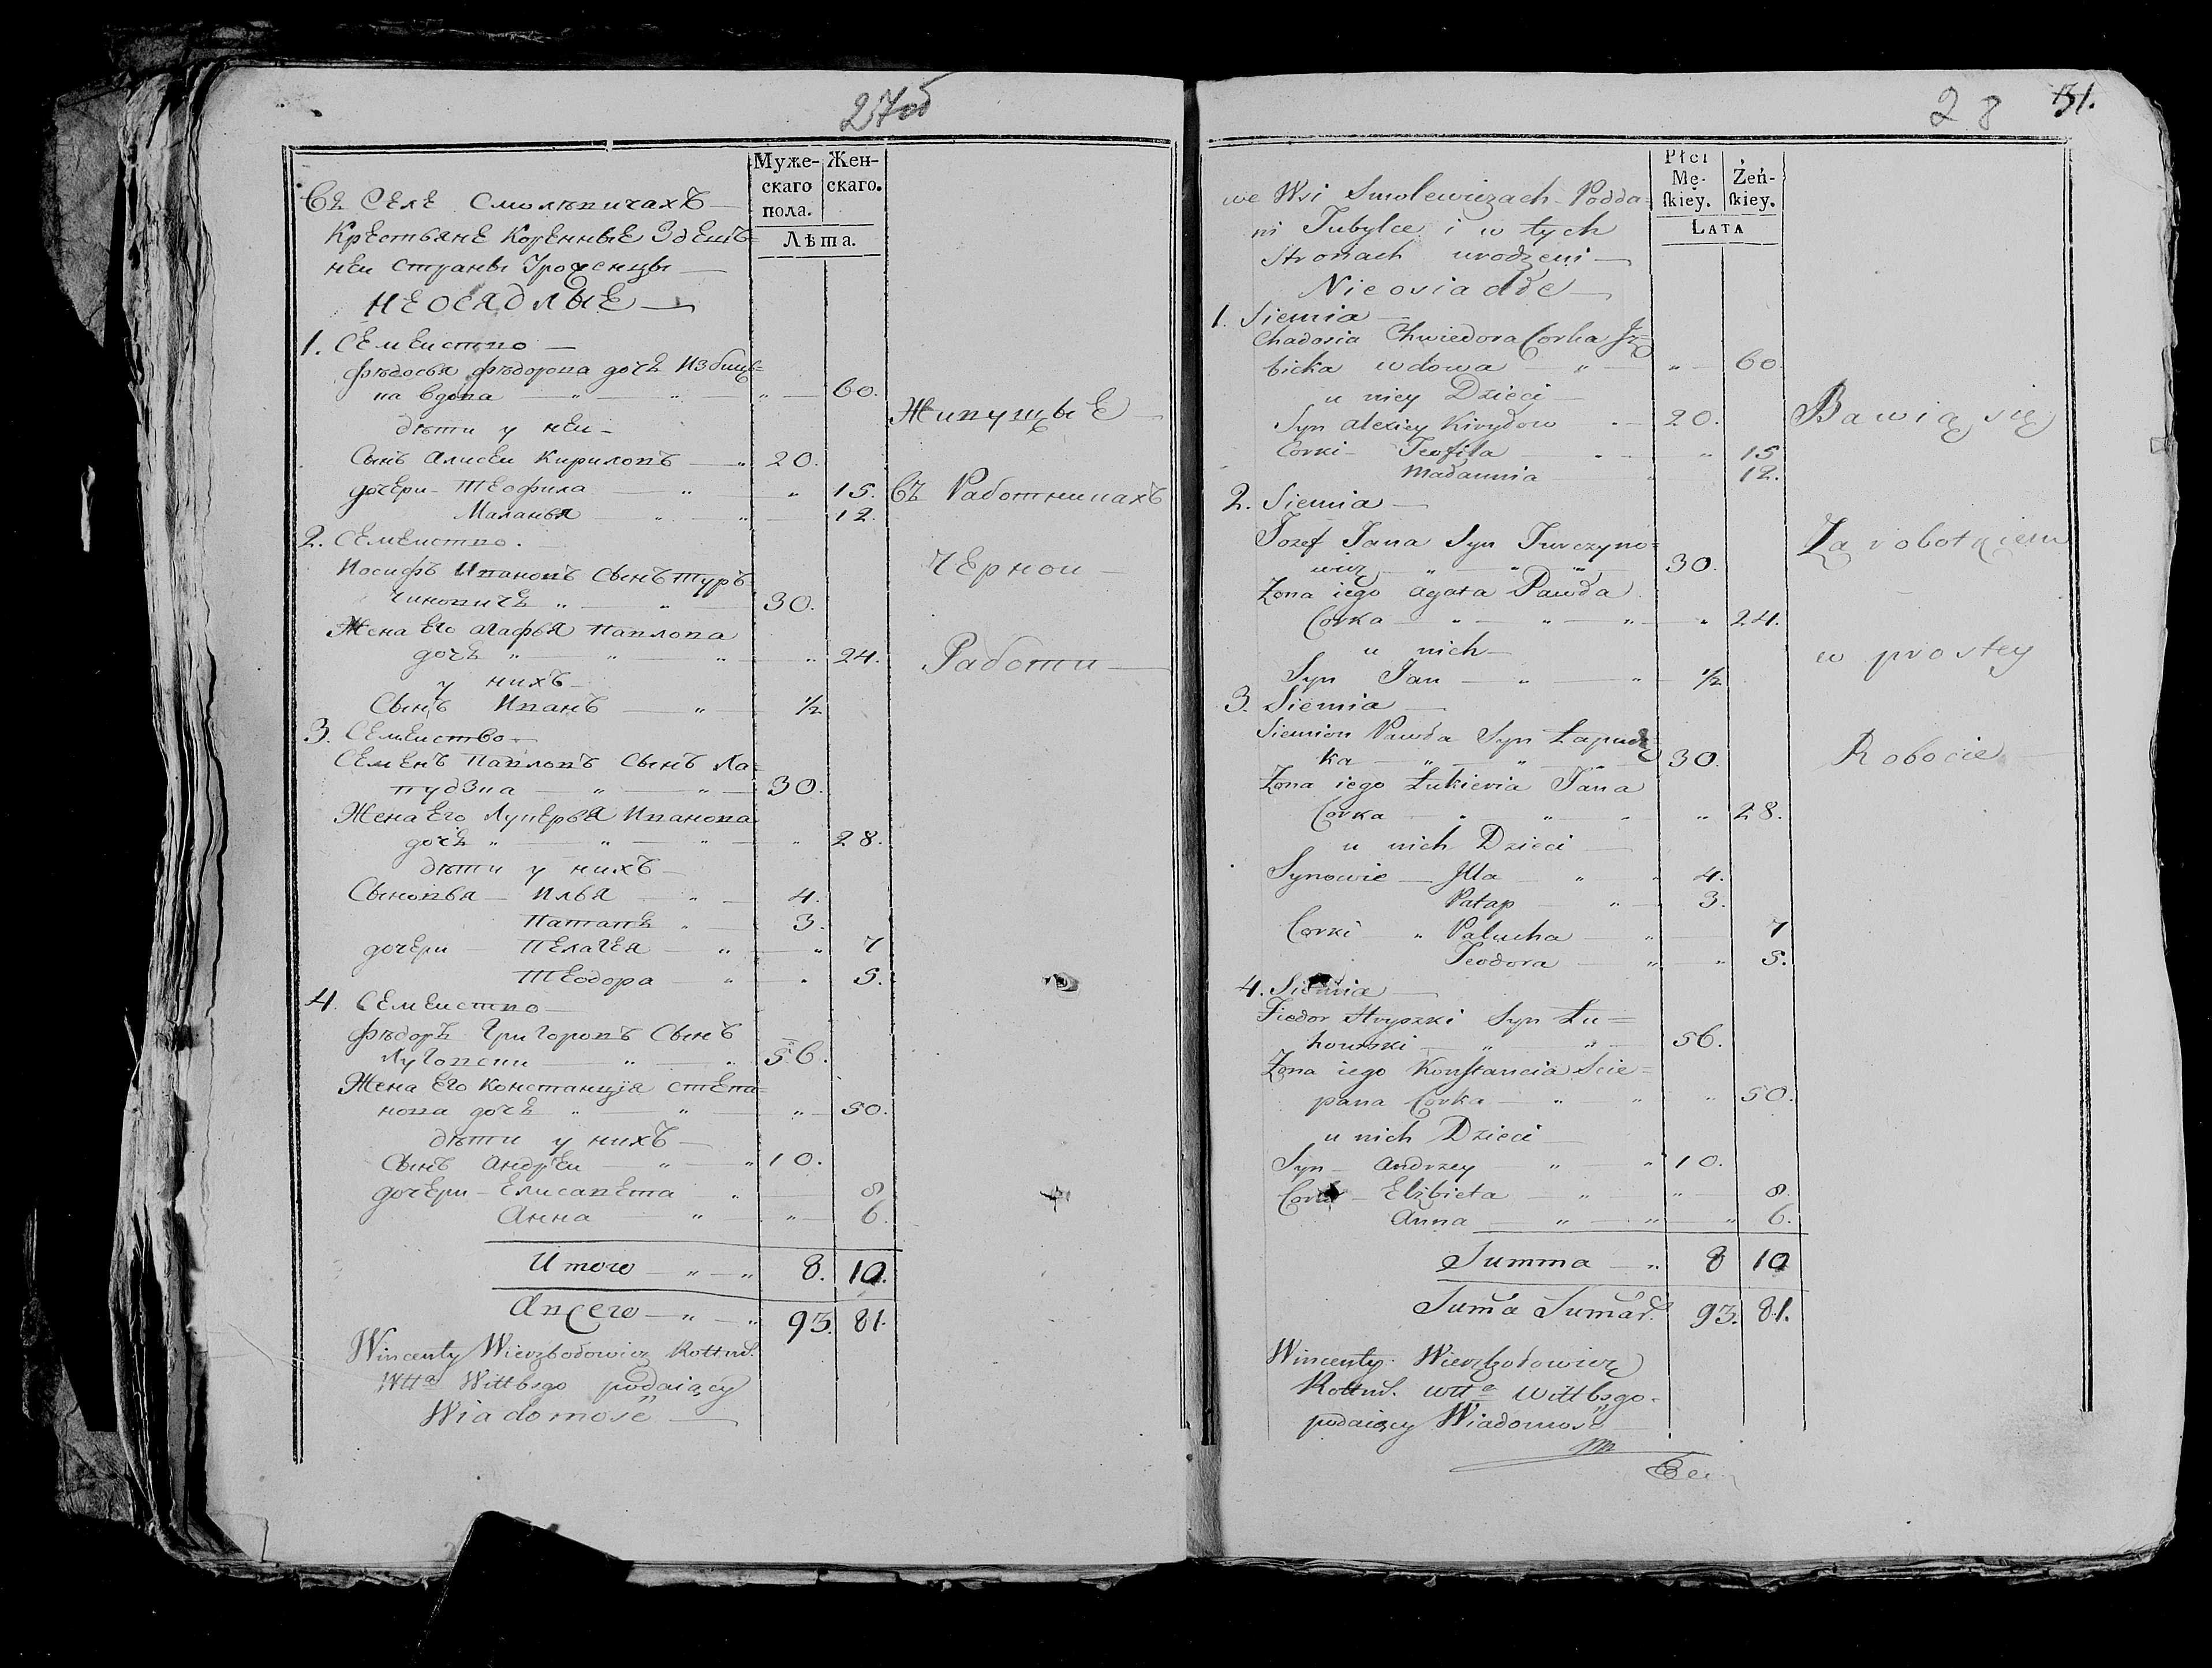 27об
Муже-
скаго
пола.
Жен-
скаго.
Лѣта.
Въ Селе Смолѣвичахъ
Крестьяне Коренные Здешъ=
неи страны Уроженцы
неосядлые
1. Семеиство
Фѣдосья Фѣдорова дочь Избиць=
ка вдова " " 60.
дѣти у неи
Сынъ Алисеи Кириловъ " 20.
дочери Теофила " " 15.
Маланья " " 12.
2. Семеиство.
Иосифъ Ивановъ Сынъ Тур=
чиновичъ " " 30.
Жена Его Агафья Павлова
дочь " " " " 24.
у нихъ
Сынъ Иванъ " 1/2
3. Семеиство
Семенъ Павловъ Сынъ Ла=
пудзка " " 30.
Жена Его Лукерья Иванова
дочь " " " " 28.
дѣти у нихъ
Сыновья Илья " 4.
Патапъ " 3.
дочери Пелагея " " 7
Теодора " " 5.
4. Семеиство
Фѣдоръ Григоровъ Сынъ
Луговски " " 56.
Жена Его Констанція Степа=
нова дочь " " " 50.
дѣти у нихъ
Сынъ Андреи " " 10.
дочери Елисавета " 8
Анна " " 6.
Итого " " 8. 10.
Авсего " " 93. 81.
Wincenty Wierzbołowicz Rottm.
Wttª Wittbsgo podaiący
Wiadomość
Живущые
Въ Работникахъ
Чернои
Работи
28 31.
Płci
Mę-
skiey.
Żeń-
skiey.
Lata
we Wsi Smolewiczach Podda=
ni Tubylce i w tych
Stronach urodzeni
Nieosiadłe
1. Siemia
Chadosia Chwiedora Corka Jz=
bicka wdowa " " 60.
u niey Dzieci
Syn Alexiey Kiryłow 20.
Corki Teofila " " 15
Małannia " 12.
2. Siemia
Jozef Jana Syn Turczyno=
wicz " " " 30.
Żona iego Agata Pawła
Corka " " " " 24.
u nich
Syn Jan " " 1/2
3. Siemia
Siemion Pawła Syn Łapudz=
ka " " " 30.
Żona iego Łukieria Jana
Corka " " " " 28.
u nich Dzieci
Synowie Jlla " " 4.
Patap " 3.
Corki " Palucha " 7
Teodora " " 5.
4. Siemia
Fiedor Hryszki Syn Łu=
howski " " 56.
Żona iego Konstancia Scie=
pana Corka " " " 50.
u nich Dzieci
Syn Andrzey " " 10.
Corki Elżbieta " " 8.
Anna " " " 6.
Summa " 8 10
Sum̃a Sumar. 93. 81.
Wincenty Wierzbołowicz
Rottm. Wttª Wittbsgo
podaiący Wiadomość
Bawią się
Zarobotkiem
w prostey
Robocie